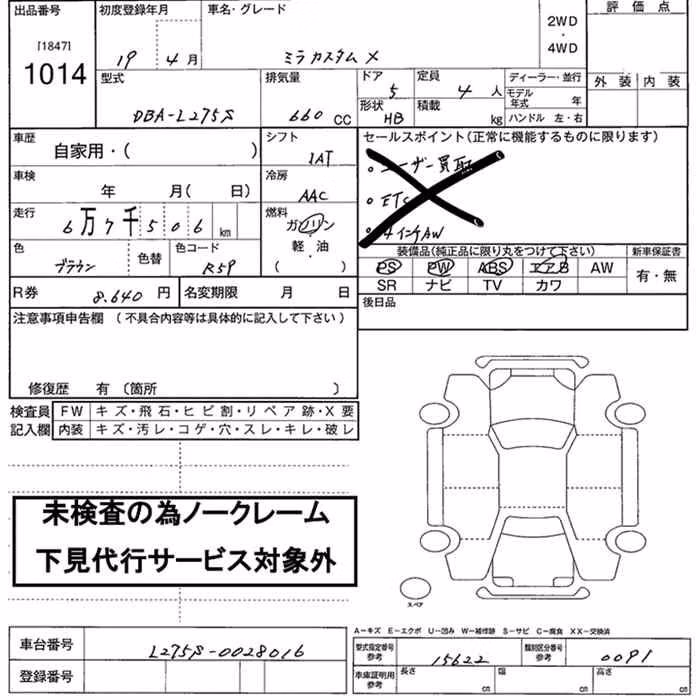 出品番号 初度登録年月 車名・グレード 評価点
[1847] 1014 19 4月 ミラカスタム X 2WD・4WD
型式 排気量 ドア 5 定員 4人 ディーラー・並行 外装 内装
DBA-L275S 660 CC 形状 HB 積載 kg モデル年式 年
ハンドル 左・右
車歴 自家用・( ) シフト IAT セールスポイント(正常に機能するものに限ります)
。ユーザー買取
車検 年 月( 日) 冷房 AAC 。ETC
走行 6万7千506 km 燃料 ガソリン 。14インチAW
軽・油
( )
色 ブラウン 色替 色コード R59 装備品(純正品に限り丸をつけて下さい) 新車保証書
PS PW ABS エアB AW 有・無
SR ナビ TV カワ
R券 8.640円 名変期限 月 日 後日品
注意事項申告欄(不具合内容等は具体的に記入して下さい)
修復歴 有(箇所 )
検査員 FW キズ・飛石・ヒビ割・リペア跡・X要
記入欄 内装 キズ・汚レ・コゲ・穴・スレ・キレ・破レ
未検査の為ノークレーム
下見代行サービス対象外
スペア
A―キズ E―エクボ U―凹み W―補修跡 S―サビ C―腐食 XX―交換済
車台番号 L275S-0028016 型式指定番号 参考 15622 類別区分番号 参考 0091
登録番号 車庫証明用 参考 長さ cm 幅 cm 高さ cm